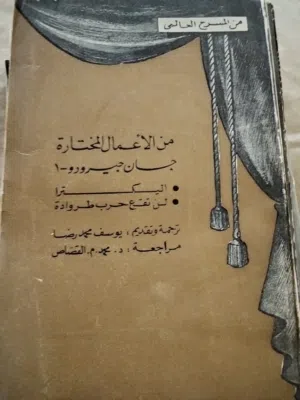 من المسرح العالمى
من الأعمال المختارة
جان جيرودو - ١
• اليكترا
• لن تقع حرب طروادة
ترجمة وتقديم : يوسف محمد رضا
مراجعة : د. محمد. م. القصاص